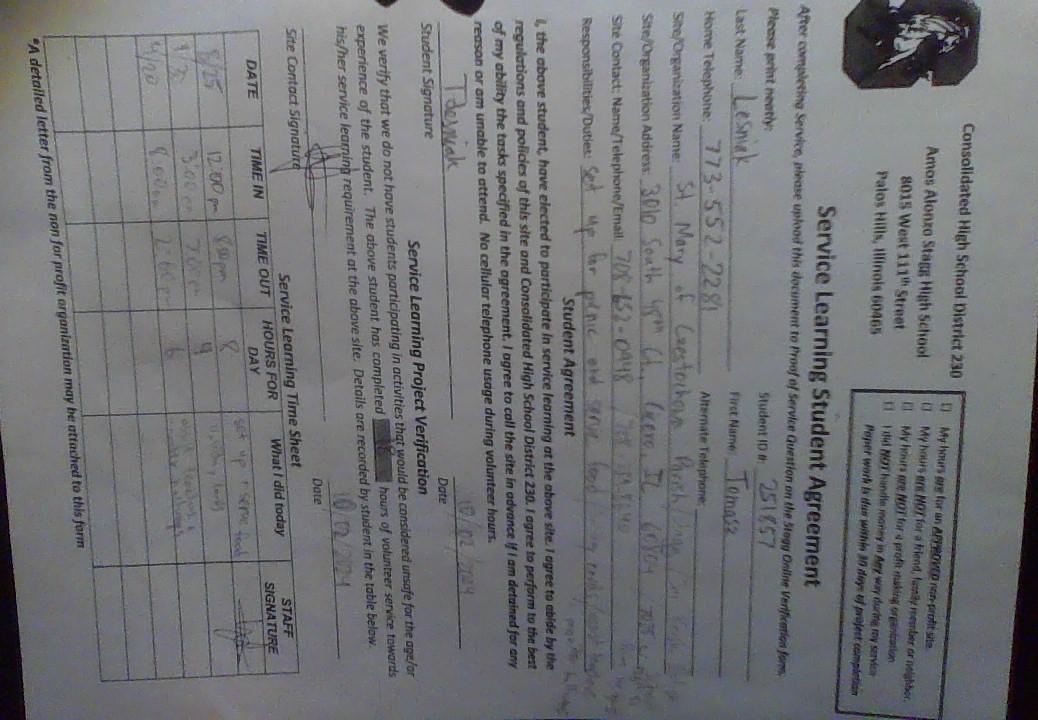 Consolidated High School District 230
Amos Alonzo Stagg High School
8015 West 111th Street
Palos Hills, Illinois 60465
☐ My hours are for an APPROVED non-profit site.
☐ My hours are NOT for a friend, family member or neighbor.
☐ My hours are NOT for a profit making organization
☐ I did NOT handle money in Any way during my service
Paper work is due within 30 days of project completion
Service Learning Student Agreement
After completing Service, please upload this document to Proof of Service Question on the Stagg Online Verification form.
Please print neatly: Student ID #: 251857
Last Name: Lesniak First Name: Tomasz
Home Telephone: 773-552-2281 Alternate Telephone:
Site/Organization Name: St. Mary of Czestochowa Parish
Site/Organization Address: 3010 South 48th Ct, Cicero, IL 60804
Site Contact: Name/Telephone/Email 708-652-0948
Responsibilities/Duties: Set up for picnic and serve food
Student Agreement
I, the above student, have elected to participate in service learning at the above site. I agree to abide by the
regulations and policies of this site and Consolidated High School District 230. I agree to perform to the best
of my ability the tasks specified in the agreement. I agree to call the site in advance if I am detained for any
reason or am unable to attend. No cellular telephone usage during volunteer hours.
T Lesniak 10/02/2024
Student Signature Date
Service Learning Project Verification
We verify that we do not have students participating in activities that would be considered unsafe for the age/or
experience of the student. The above student has completed hours of volunteer service towards
his/her service learning requirement at the above site. Details are recorded by student in the table below.
10/02/2024
Site Contact Signature Date
Service Learning Time Sheet
DATE TIME IN TIME OUT HOURS FOR DAY What I did today STAFF SIGNATURE
8/25 12:00 pm 8:00pm 8 set up + serve food
3:00 pm 7:00pm 4
8:00am 2:00pm 6
*A detailed letter from the non for profit organization may be attached to this form